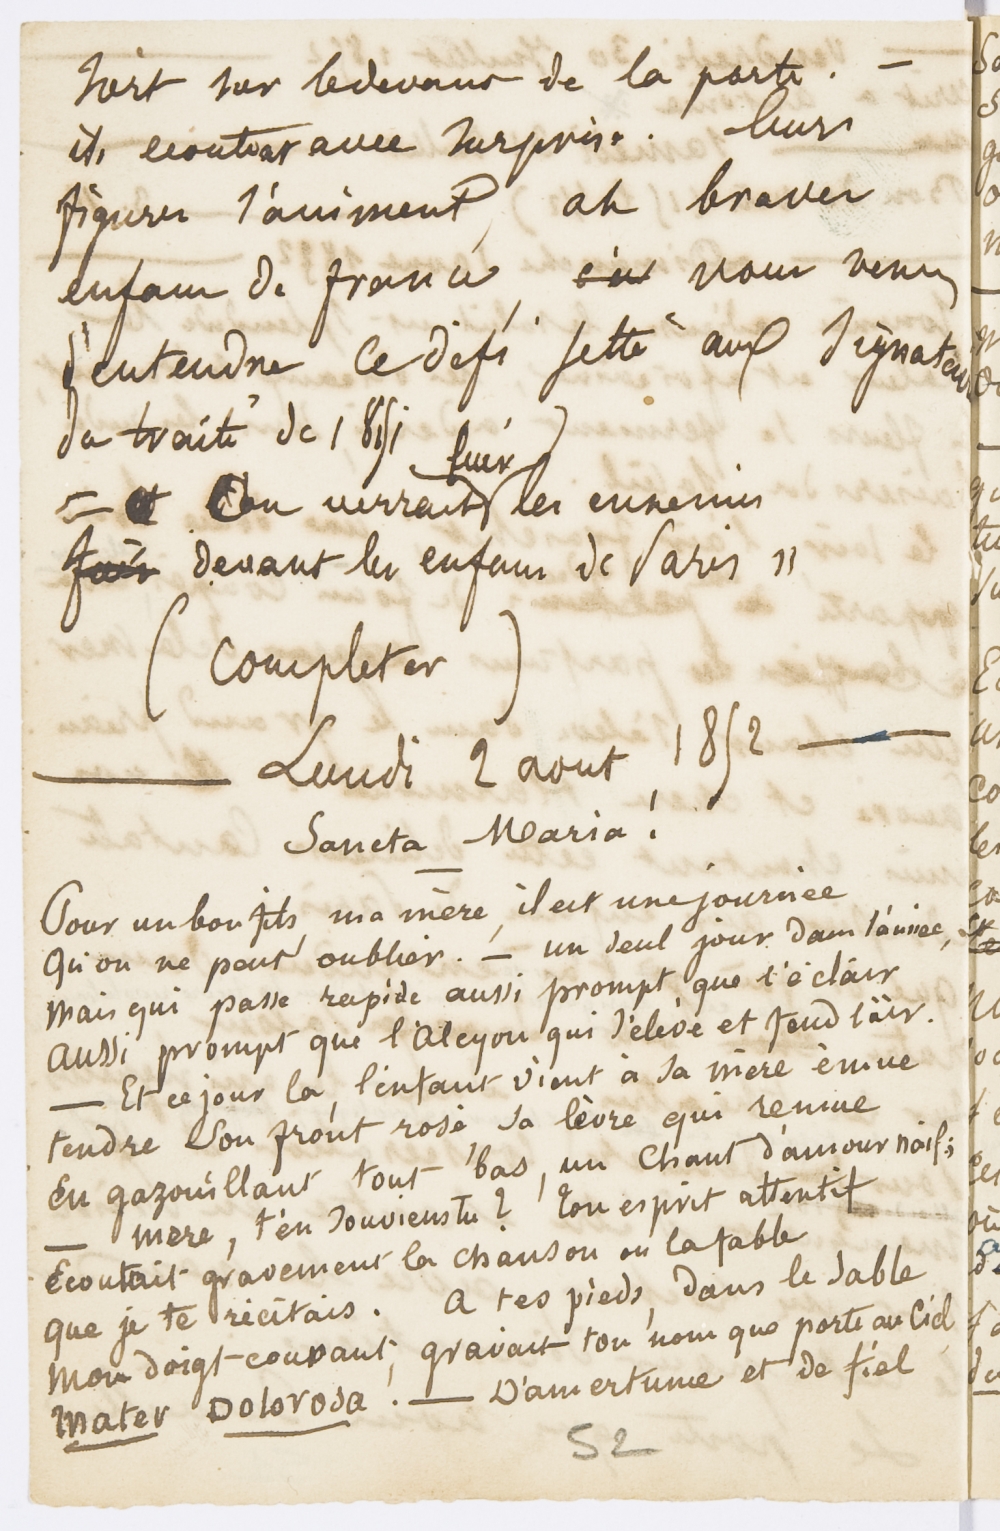 sort sur ledevant de la porte. —
ils ecoutent avec surprise. leurs
figures s'animent, ah braves
enfans de france, vous venez
d'entendre ce defi jetté aux signataires
du traité de 1851
— On verrait fuir les ennemis
fuir devant les enfans de Paris »
(Completer)
Lundi 2 aout 1852
Sancta Maria!
Pour un bon fils, ma mère, il est une journée
Qu'on ne peut oublier. — un seul jour dans l'année,
mais qui passe rapide aussi prompt que l'éclair
aussi prompt que l'Alcyon qui s'élève et fend l'air.
— Et ce jour la, l'enfant vient à sa mère émue
tendre son front rosé sa lèvre qui remue
En gazouillant tout bas, un chant d'amour naïf;
— mere, t'en souviens tu? Ton esprit attentif
Ecoutait gravement la chanson ou la fable
que je te récitais. A tes pieds, dans le sable
mon doigt courant, gravait ton nom que porte au Ciel
Mater Dolorosa! — D'amertume et de fiel
52